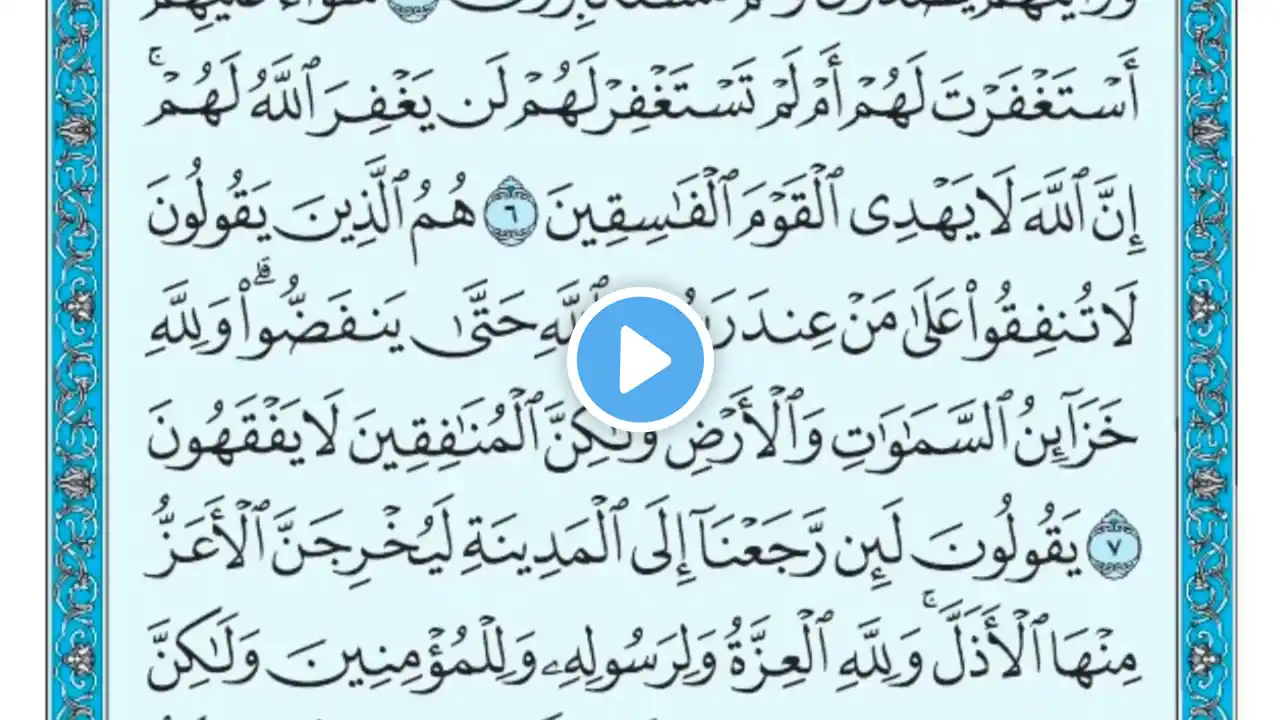 أَسْتَغْفَرْتَ لَهُمْ أَمْ لَمْ تَسْتَغْفِرْ لَهُمْ لَن يَغْفِرَ ٱللَّهُ لَهُمْ ۚ
إِنَّ ٱللَّهَ لَا يَهْدِى ٱلْقَوْمَ ٱلْفَـٰسِقِينَ ٦ هُمُ ٱلَّذِينَ يَقُولُونَ
لَا تُنفِقُوا۟ عَلَىٰ مَنْ عِندَ ٱللَّهِ حَتَّىٰ يَنفَضُّوا۟ ۗ وَلِلَّهِ
خَزَآئِنُ ٱلسَّمَـٰوَٰتِ وَٱلْأَرْضِ وَلَـٰكِنَّ ٱلْمُنَـٰفِقِينَ لَا يَفْقَهُونَ
٧ يَقُولُونَ لَئِن رَّجَعْنَآ إِلَى ٱلْمَدِينَةِ لَيُخْرِجَنَّ ٱلْأَعَزُّ
مِنْهَا ٱلْأَذَلَّ ۚ وَلِلَّهِ ٱلْعِزَّةُ وَلِرَسُولِهِۦ وَلِلْمُؤْمِنِينَ وَلَـٰكِنَّ